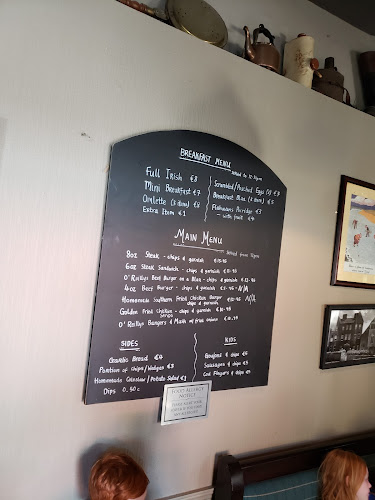 BREAKFAST MENU
Served to 12.30pm
Full Irish €8
Mini Breakfast €7
Omlette (3 items) €8
Extra Item €1
Scrambled/Poached Eggs
Breakfast Blaa (3 items) €5
Flahavans Porridge €3
- with fruit €4
MAIN MENU
Served from 12pm
8oz Steak - chips & garnish
6oz Steak Sandwich - chips & garnish
O'Reillys Beef Burger on a Blaa - chips &
4oz Beef Burger - chips & garnish N/A
Homemade Southern Fried Chicken Burger N/A
chips & garnish
Golden Fried Chicken - chips & garnish
O'Reillys Bangers & Mash w/ fried onions
SIDES
Garlic Bread €4
Portion of Chips/Wedges €3
Homemade Coleslaw/Potato Salad
Dips 0.50c
KIDS
Goujons & chips €6
Sausages & chips €5
Cod Fingers & chips
FOOD ALLERGY
NOTICE